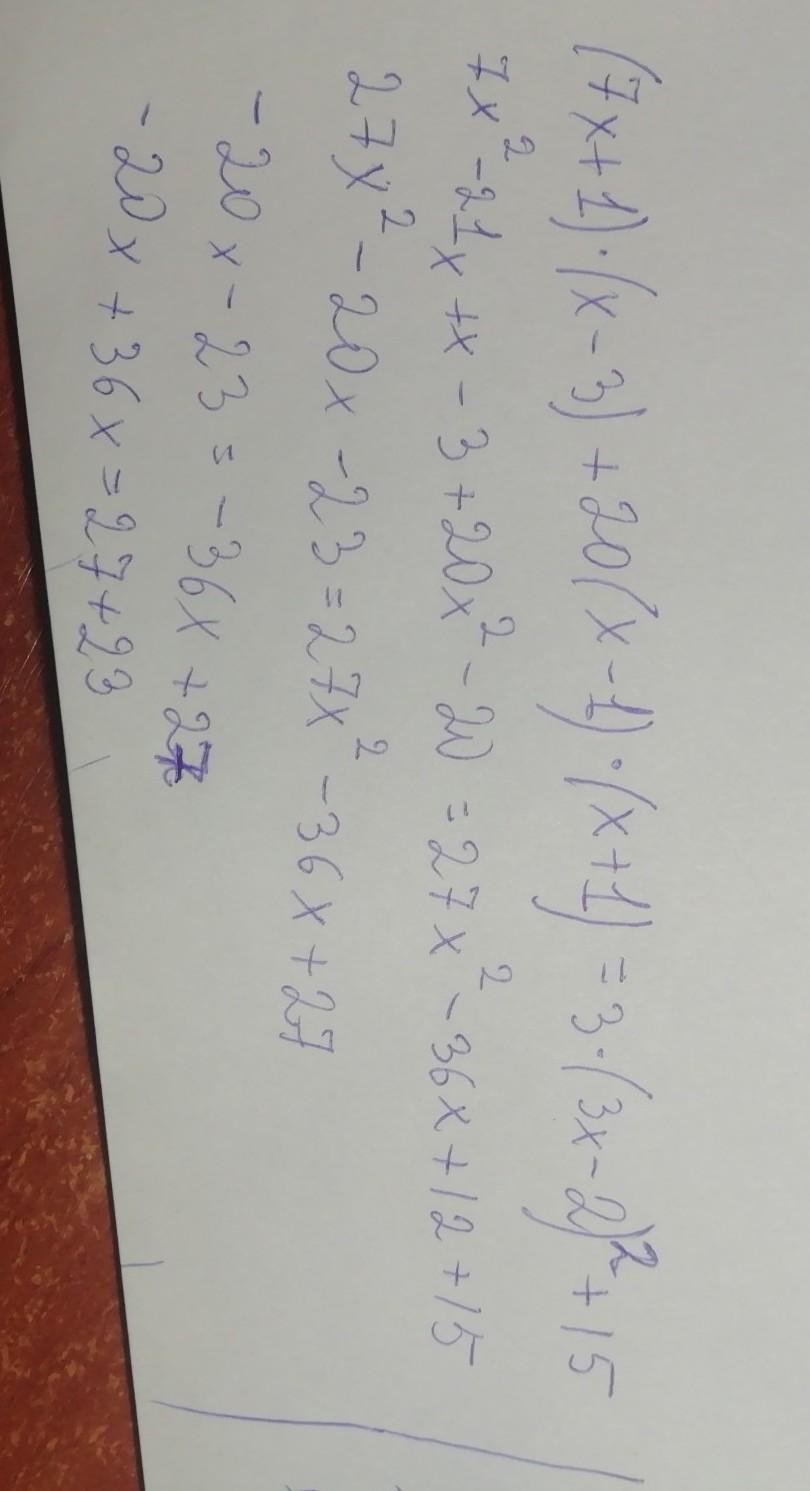 (7x+1)·(x-3)+20(x-1)·(x+1)=3·(3x-2)²+15
7x²-21x+x-3+20x²-20=27x²-36x+12+15
27x²-20x-23=27x²-36x+27
-20x-23=-36x+27
-20x+36x=27+23